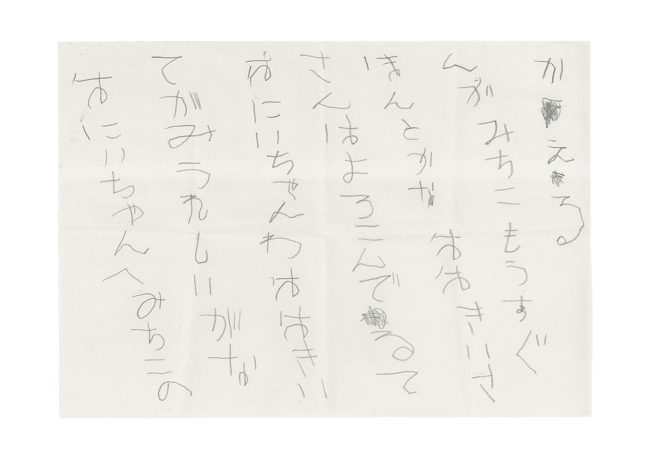 おにいちゃんへ みちこの
てがみうれしい がな
おにいちゃんわおおきい
さんはよろこんでるて
ほんとかな おおきいさ
んが みちこもうすぐ
かえる